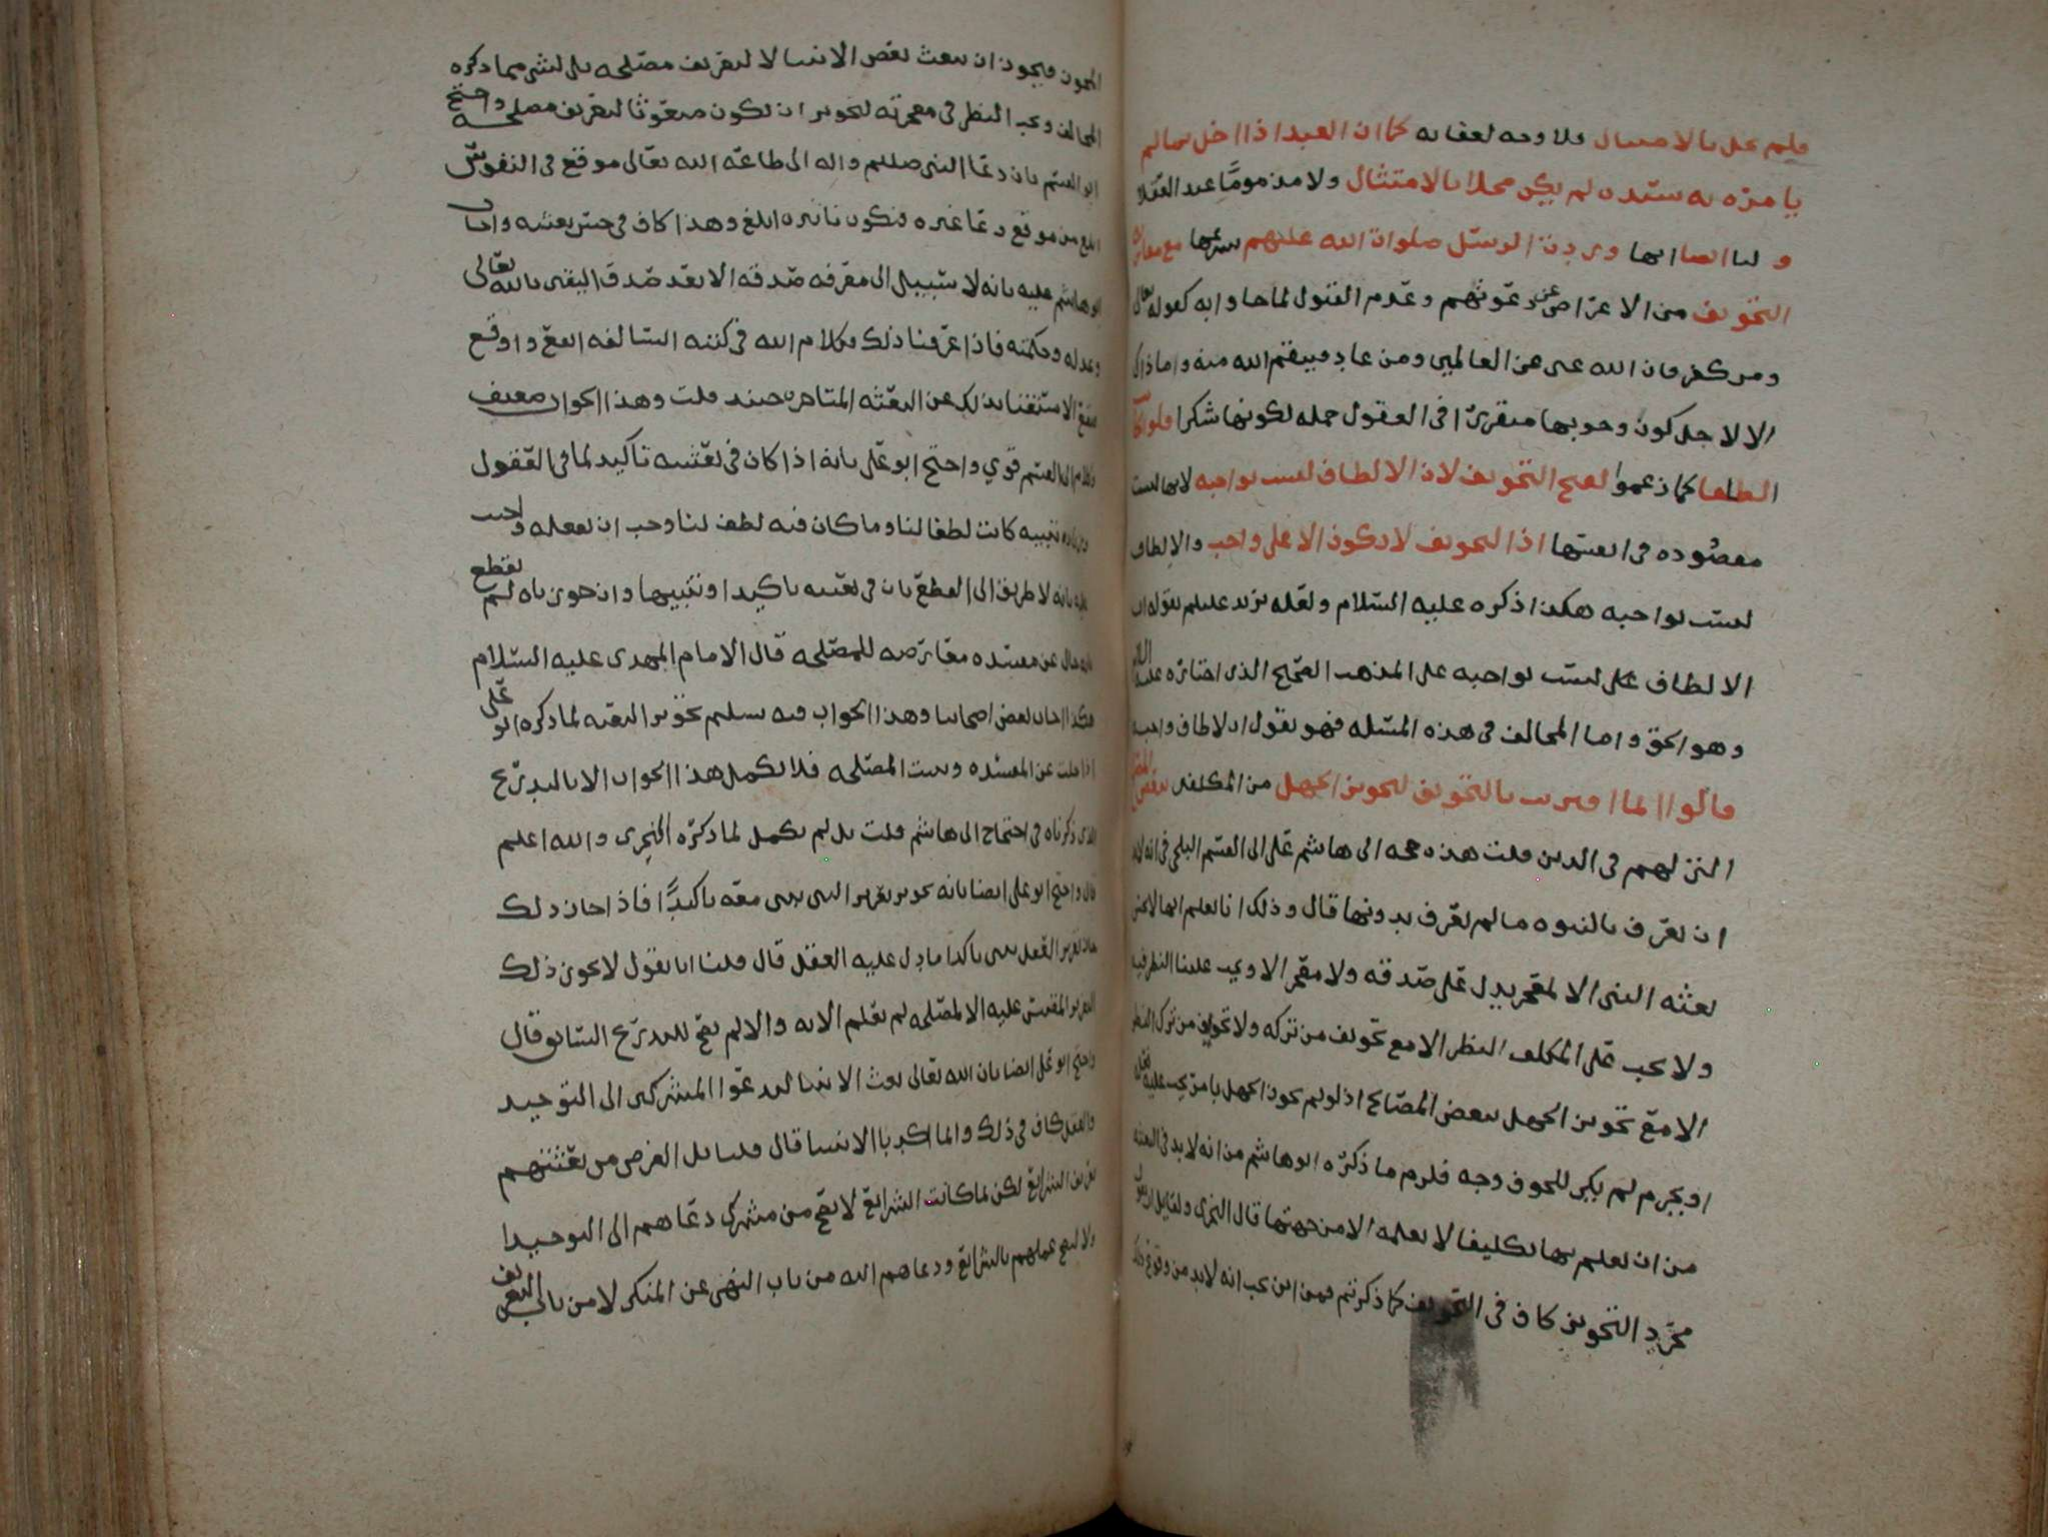 فلم يخل بالامتثال فلا وجه لعقابه كما ان العبد اذا اخل بما لم
يامره به سيده لم يكن مخلا بالامتثال ولا مذموما عند العقلا
و لنا ايضا انها ورود الرسل صلوات الله عليهم بشرعها مع مقارنة
التخويف من الاعراض عن دعوتهم وعدم القبول لما جاوا به كقوله تعالى
ومن كفر فان الله غني عن العالمين ومن عاد فينتقم الله منه وما ذاك
الا لاجل كون وجوبها متقررا في العقول جملة لكونها شكرا فلو كانت
الطافا كما زعموا لقبح التخويف لان الالطاف ليست بواجبه لانها ليست
مقصوده في انفسها اذ التخويف لا يكون الا على واجب والالطاف
ليست بواجبه هكذا ذكره عليه السلام ولعله يريد عليلم بقوله ان
الالطاف ليست بواجبه على المذهب الصحيح الذي اختاره عليه السلام
وهو الحق واما المخالف في هذه المسئله فهو يقول ان الالطاف واجبه
قالوا انما اقترنت بالتخويف لتجويز الجهل من المكلفين ببعض المصالح
التي لهم في الدين قلت هذه حجة ابي هاشم على ابي القسم البلخي في انه لابد
ان نعرف بالنبوه ما لم نعرف بدونها قال وذلك انا نعلم انها لا تحسن
بعثة النبي الا لمعجز يدل على صدقه ولا معجز الا ويجب علينا النظر فيه
ولا يجب على المكلف النظر الا مع تخويف من تركه ولا تخويف من ترك النظر
الا مع تجويز الجهل ببعض المصالح اذ لو لم يجوز الجهل بامر يجب عليه فعله
او يحرم لم يكن للخوف وجه فلزم ما ذكره ابو هاشم من انه لابد في البعثة
من ان نعلم بها تكليفا لا نعلمه الا من جهتها قال النجري ولقايل ان يقول
مجرد التخويف كاف في التخويف كما ذكرتم فمن اين يجب انه لابد من وقوع ذلك
المجوز فيجوز ان يبعث بعض الانبيا لا لتعريف مصلحه بل لشي مما ذكره
المخالف ويجب النظر في معجزته لتجويز ان يكون مبعوثا لتعريف مصلحه واحتج
ابو القسم بان دعا النبي صلعم واله الى طاعة الله تعالى موقع في النفوس
ابلغ من موقع دعا غيره فيكون تاثيره ابلغ وهذا كاف في حسن بعثته واجاب
ابو هاشم عليه بانه لا سبيل الى معرفه صدقه الا بعد صدق اليقين بالله تعالى
وعدله وحكمته فاذا عرفنا ذلك فكلام الله في كتبه السالفه انفع واوقع
فيقع الاستغنا بذلك عن البعثه المتاخره حينئذ قلت وهذا الجواب ضعيف
وكلام ابي القسم قوي واحتج ابو علي بانه اذا كان في بعثته تاكيد لما في العقول
وزياده تنبيه كانت لطفا لنا وما كان فيه لطف لنا وجب ان يفعله واجيب
عليه بانه لا طريق الى القطع بان في بعثته تاكيدا وتنبيها وان جوزناه لم نقطع
بانه خال عن مفسده معارضه للمصلحه قال الامام المهدي عليه السلام
هكذا اجاب بعض اصحابنا وهذا الجواب فيه تسليم تجويز البعثه لما ذكره ابو علي
اذا خلت عن المفسده وثبتت المصلحه فلا يكمل هذا الجواب الا بالتدريج
الذي ذكرناه في احتجاج ابي هاشم قلت بل لم يكمل لما ذكره النجري والله اعلم
قال واحتج ابو علي ايضا بانه يجوز تقرير النبي بنبي معه تاكيدا فاذا جاز ذلك
جاز تقرير العقل بنبي تاكيدا ما دل عليه العقل قال قلنا انا نقول لا يجوز ذلك
التقرير المقيس عليه الا لمصلحه لم نعلم الا به والا لم يصح للتدريج السابق قال
واحتج ابو علي ايضا بان الله تعالى بعث الانبيا ليدعوا المشركين الى التوحيد
والعقل كاف في ذلك وانما اكد بالانبيا قال قلنا بل الغرض من بعثتهم
تعريف الشرايع لكن لما كانت الشرايع لا تصح من مشرك دعاهم الى التوحيد
ولا ليصح عملهم بالشرايع ودعاهم اليه من باب النهي عن المنكر لا من باب التعريف